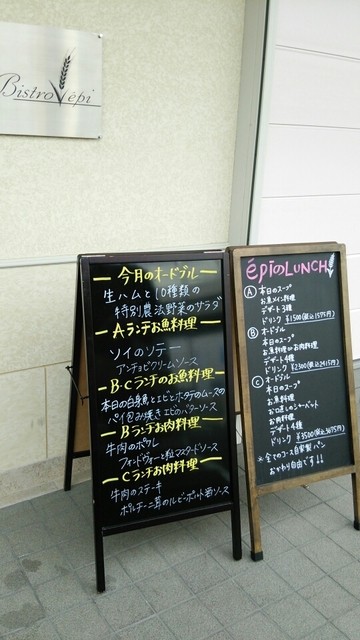 Bistro épi
今月のオードブル
生ハムと10種類の
特別農法野菜のサラダ
Aランチお魚料理
ソイのソテー
アンチョビクリームソース
B・Cランチのお魚料理
本日の白身魚とエビとホタテのムースの
パイ包み焼き エビのバターソース
Bランチお肉料理
牛肉のポワレ
フォンドヴォーと粒マスタードソース
Cランチお肉料理
牛肉のステーキ
ポルチーニ茸のルビーポルト酒ソース
épiのLUNCH
A 本日のスープ
お魚メイン料理
デザート3種
ドリンク ¥1500(税込1575円)
B オードブル
本日のスープ
お魚料理orお肉料理
デザート4種
ドリンク ¥2300(税込2415円)
C オードブル
本日のスープ
お魚料理
お口直しのシャーベット
お肉料理
デザート4種
ドリンク ¥3500(税込3675円)
*全てのコース自家製パン
おかわり自由です!!